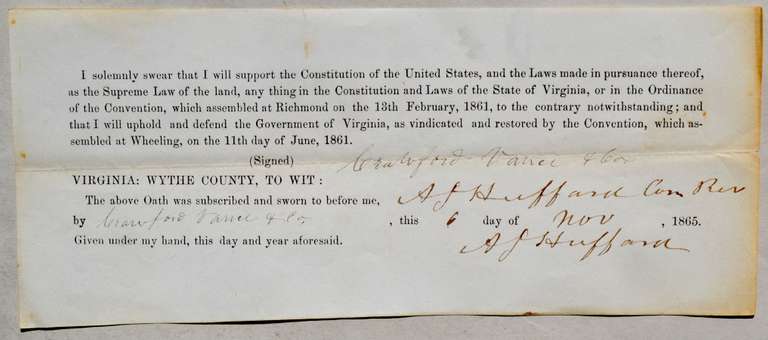 I solemnly swear that I will support the Constitution of the United States, and the Laws made in pursuance thereof,
as the Supreme Law of the land, any thing in the Constitution and Laws of the State of Virginia, or in the Ordinance
of the Convention, which assembled at Richmond on the 13th February, 1861, to the contrary notwithstanding; and
that I will uphold and defend the Government of Virginia, as vindicated and restored by the Convention, which as-
sembled at Wheeling, on the 11th day of June, 1861.
(Signed) Crawford Vance & Co
VIRGINIA: WYTHE COUNTY, TO WIT:
The above Oath was subscribed and sworn to before me, A J Huffard Com Rev
by Crawford Vance & Co, this 6 day of Nov, 1865.
Given under my hand, this day and year aforesaid. A J Huffard